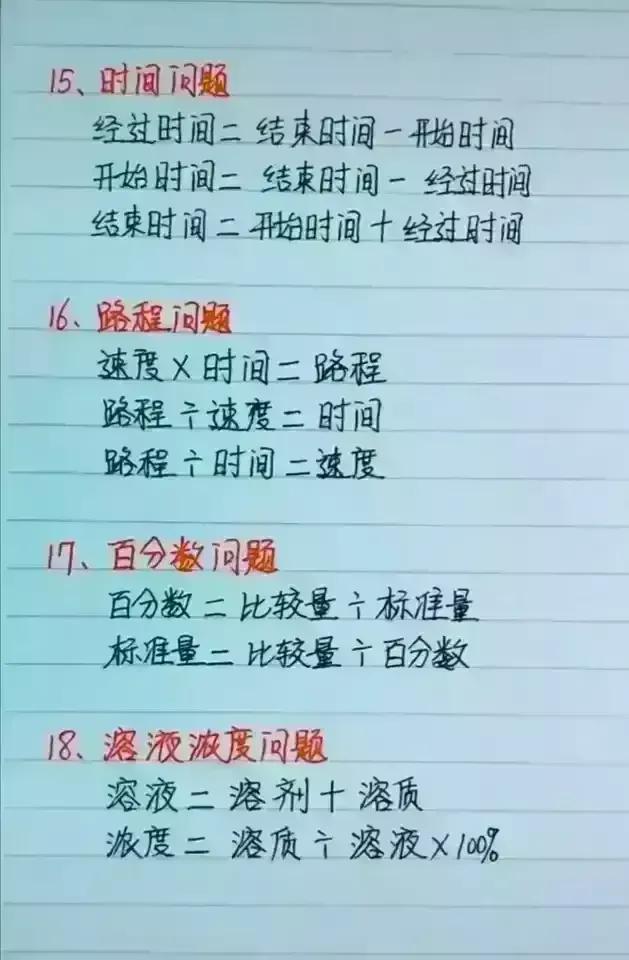 15、时间问题
经过时间=结束时间-开始时间
开始时间=结束时间-经过时间
结束时间=开始时间+经过时间
16、路程问题
速度×时间=路程
路程÷速度=时间
路程÷时间=速度
17、百分数问题
百分数=比较量÷标准量
标准量=比较量÷百分数
18、溶液浓度问题
溶液=溶剂+溶质
浓度=溶质÷溶液×100%